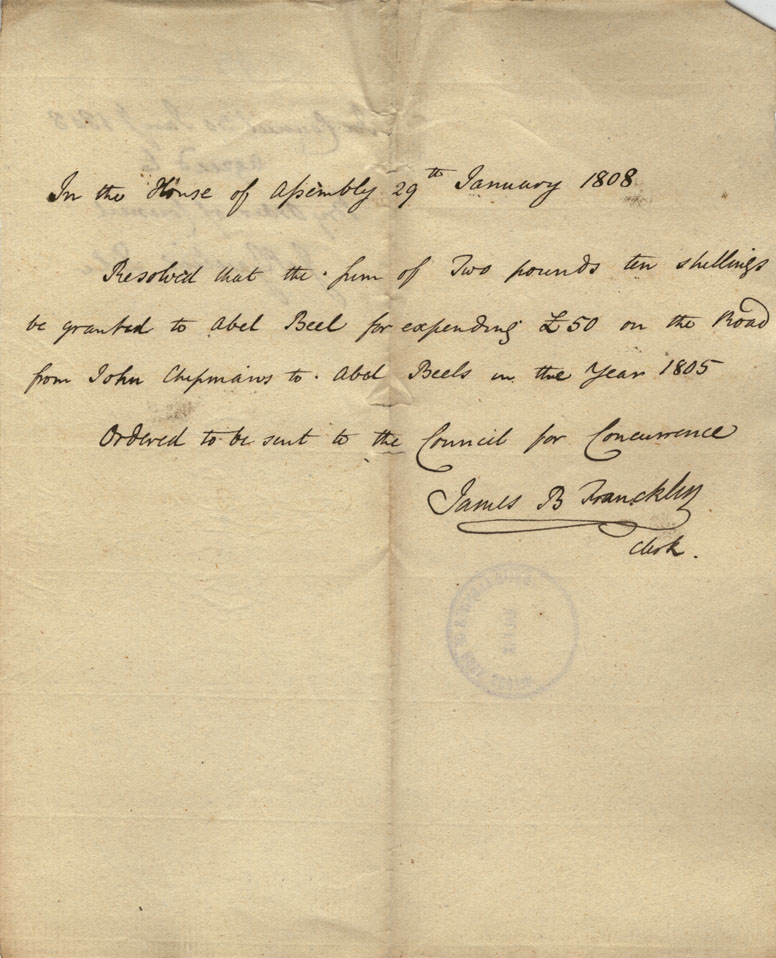 In the House of Assembly 29th January 1808
Resolved that the sum of Two pounds ten shillings
be granted to Abel Beel for expending £50 on the Road
from John Chipmans to Abel Beels in the Year 1805
Ordered to be sent to the Council for Concurrence
James B Francklin
Clerk.